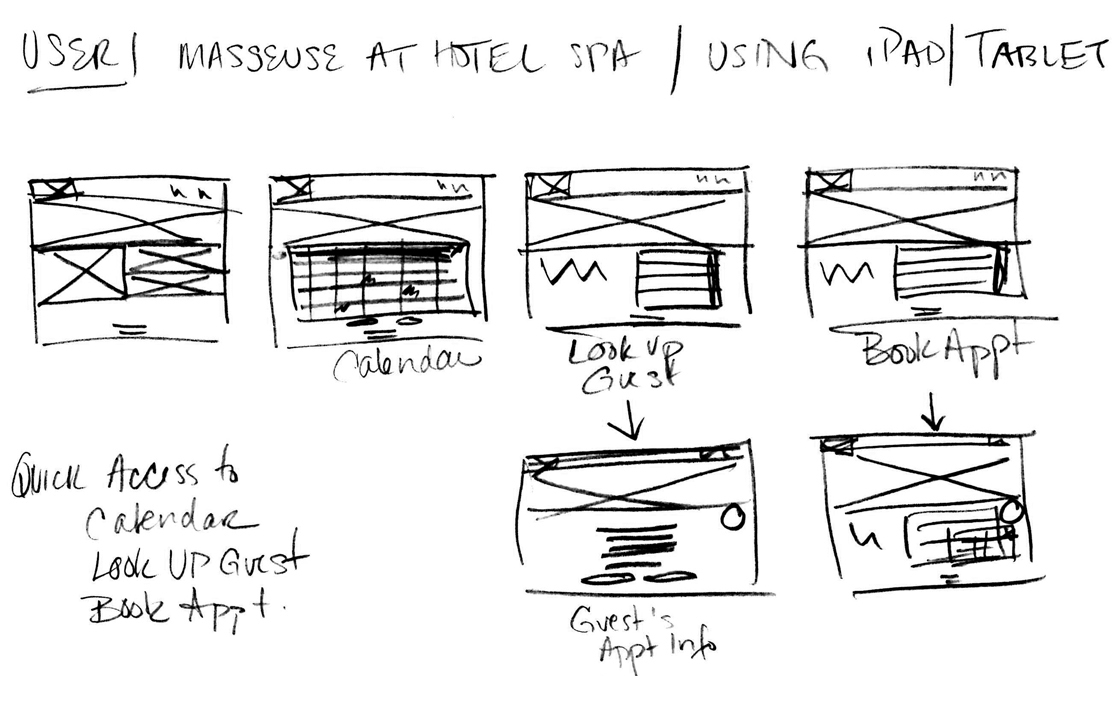 USER/ MASSEUSE AT HOTEL SPA / USING iPAD/TABLET
Calendar
Look up
Guest
Book Appt
Quick Access to
Calendar
Look UP Guest
Book Appt.
Guest's
Appt Info